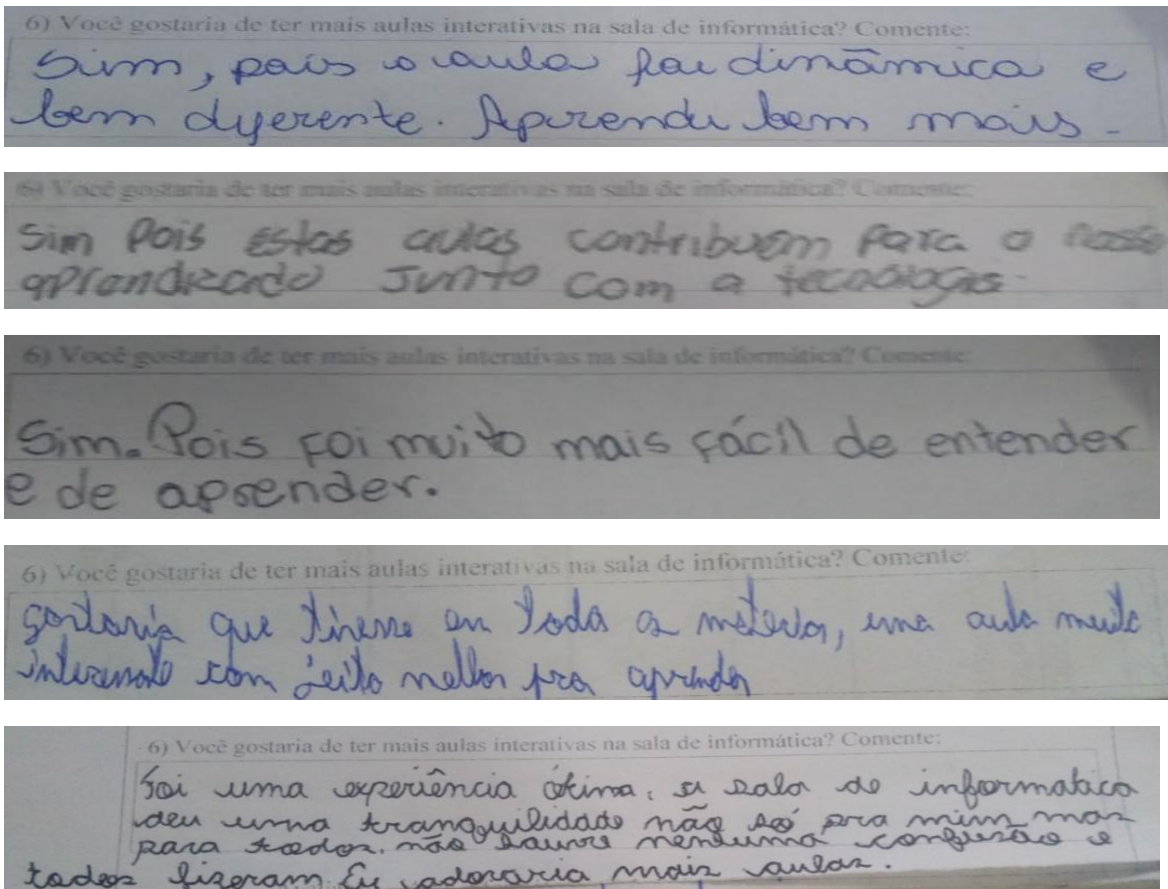 6) Você gostaria de ter mais aulas interativas na sala de informática? Comente:
Sim, pois a aula foi dinâmica e
bem diferente. Aprendi bem mais.
6) Você gostaria de ter mais aulas interativas na sala de informática? Comente:
Sim Pois estas aulas contribuem para o nosso
aprendizado Junto com a tecnologia.
6) Você gostaria de ter mais aulas interativas na sala de informática? Comente:
Sim. Pois foi muito mais fácil de entender
e de aprender.
6) Você gostaria de ter mais aulas interativas na sala de informática? Comente:
gostaria que tivesse em toda as materia, uma aula muito
interessante com jeito melhor pra aprender
6) Você gostaria de ter mais aulas interativas na sala de informática? Comente:
Foi uma experiência ótima, a sala de informatica
deu uma tranquilidade não só pra mim mas
para todos. não houve nenhuma confusão e
todos fizeram. Eu adoraria mais aulas.